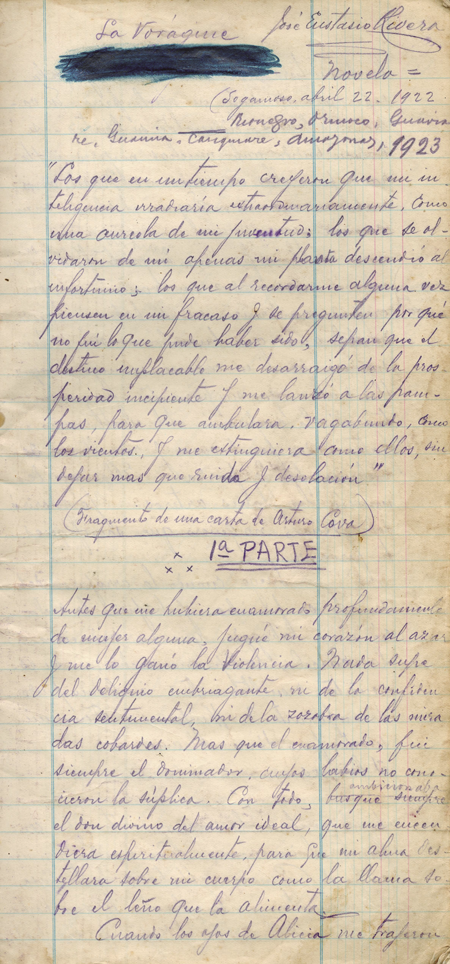 La Vorágine
José Eustasio Rivera
Novela =
(Sogamoso, abril 22. 1922
Rionegro, Orinoco, Guavia
re, Guainía. Casiquiare, Amazonas, 1923
"Los que en un tiempo creyeron que mi in-
teligencia irradiaría extraordinariamente, como
una aureola de mi juventud; los que se ol-
vidaron de mí apenas mi planta descendió al
infortunio; los que al recordarme alguna vez
piensen en mi fracaso y se pregunten por qué
no fuí lo que pude haber sido, sepan que el
destino implacable me desarraigó de la pros-
peridad incipiente y me lanzó a las pam-
pas, para que ambulara. vagabundo, como
los vientos, y me extinguiera como ellos, sin
dejar mas que ruido y desolación."
(Fragmento de una carta de Arturo Cova)
1ª PARTE
Antes que me hubiera enamorado profundamente
de mujer alguna, jugué mi corazón al azar
y me lo ganó la Violencia. Nada supe
del deliquio embriagante, ni de la confiden
cia sentimental, ni de la zozobra de las mira
das cobardes. Mas que el enamorado, fuí
siempre el dominador, cuyos labios no cono-
cieron la súplica. Con todo,
busqué siempre
el don divino del amor ideal, que me encen
diera espiritualmente, para que mi alma des
tellara sobre mi cuerpo como la llama so
bre el leño que la alimenta
Cuando los ojos de Alicia me trajeron